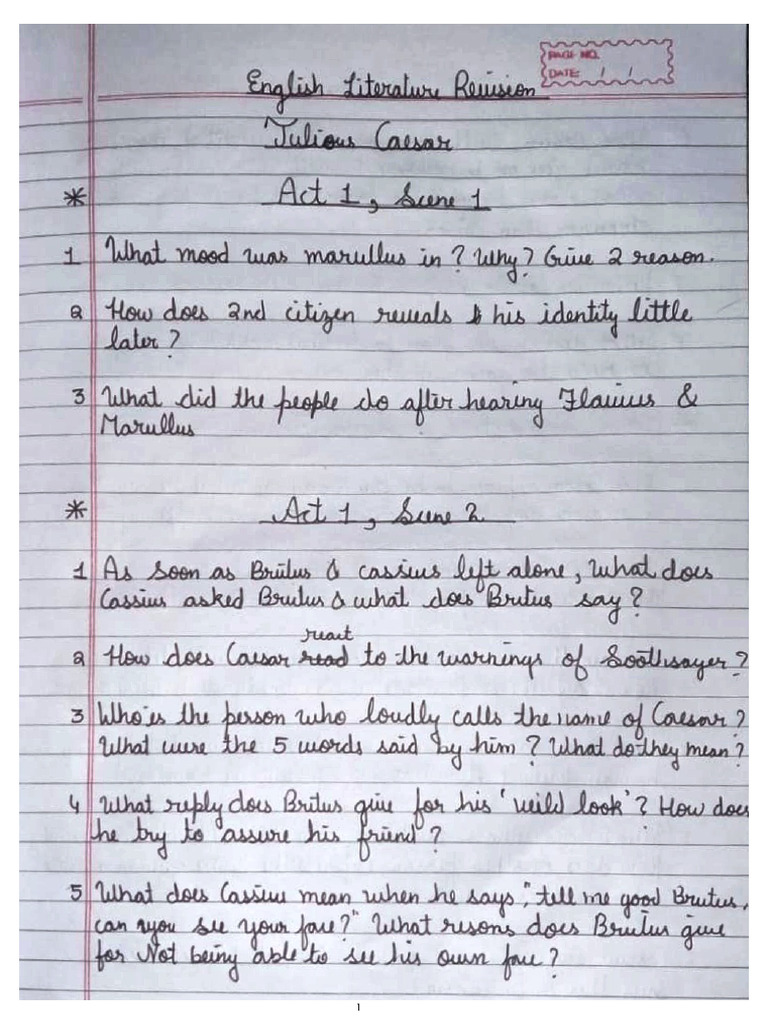 PAGE NO.
DATE: / /
English Literature Revision
Julious Caesar
* Act 1, Scene 1
1 What mood was marullus in? Why? Give 2 reason.
2 How does 2nd citizen reveals his identity little
later?
3 What did the people do after hearing Flavius &
Marullus
* Act 1, Scene 2
1 As soon as Brutus & cassius left alone, what does
Cassius asked Brutus & what does Brutus say?
react
2 How does Caesar read to the warnings of Soothsayer?
3 Who is the person who loudly calls the name of Caesar?
What were the 5 words said by him? What do they mean?
4 What reply does Britus give for his 'veild look'? How does
he try to assure his friend?
5 What does Cassius mean when he says, "tell me good Brutus,
can you see your face?" What resons does Brutus give
for Not being able to see his own face?
1